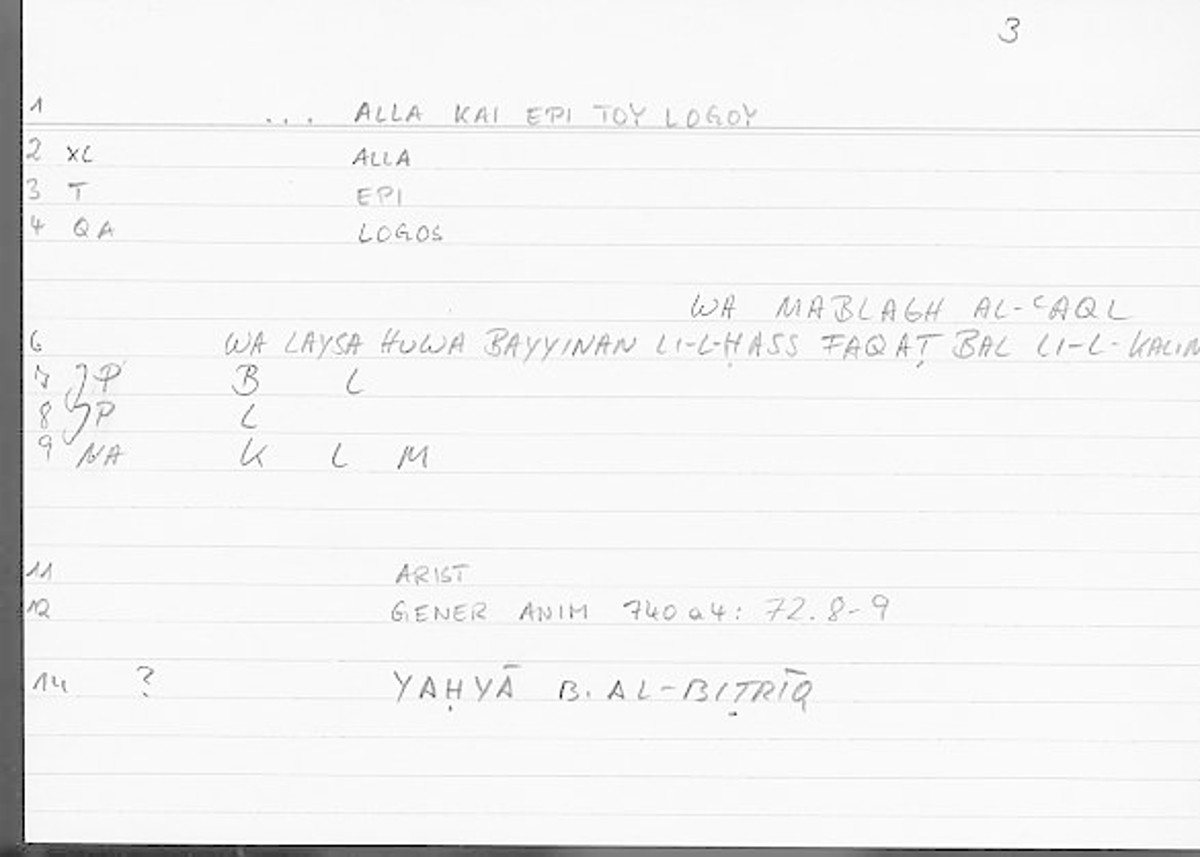 3
1 ... ALLA KAI EPI TOY LOGOY
2 XL ALLA
3 T EPI
4 QA LOGOS
WA MABLAGH AL-ʿAQL
6 WA LAYSA HUWA BAYYINAN LI-L-ḤASS FAQAṬ BAL LI-L-KALIM
7 P B L
8 P L
9 NA K L M
11 ARIST
12 GENER ANIM 740a4: 72.8-9
14 ? YAḤYĀ B. AL-BIṬRĪQ